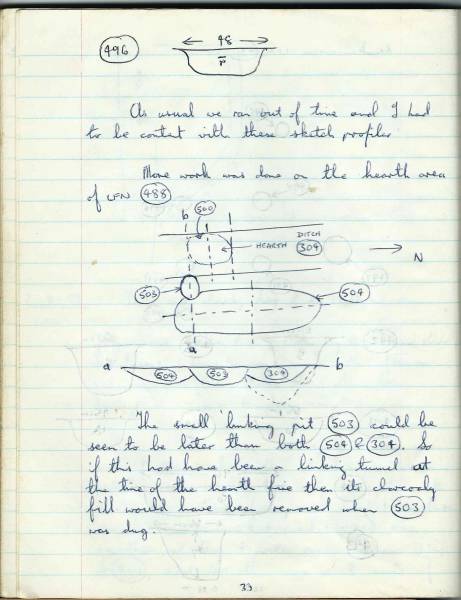 496
← 48 →
P
As usual we ran out of time and I had
to be content with these sketch profiles
More work was done on the hearth area
of LFN 488
500
b
DITCH
HEARTH 304
N
503
504
a
a 504 503 304 b
The small linking pit 503 could be
seen to be later than both 504 & 304. So
if this had have been a linking tunnel at
the time of the hearth fire then its charcoaly
fill would have been removed when 503
was dug.
33